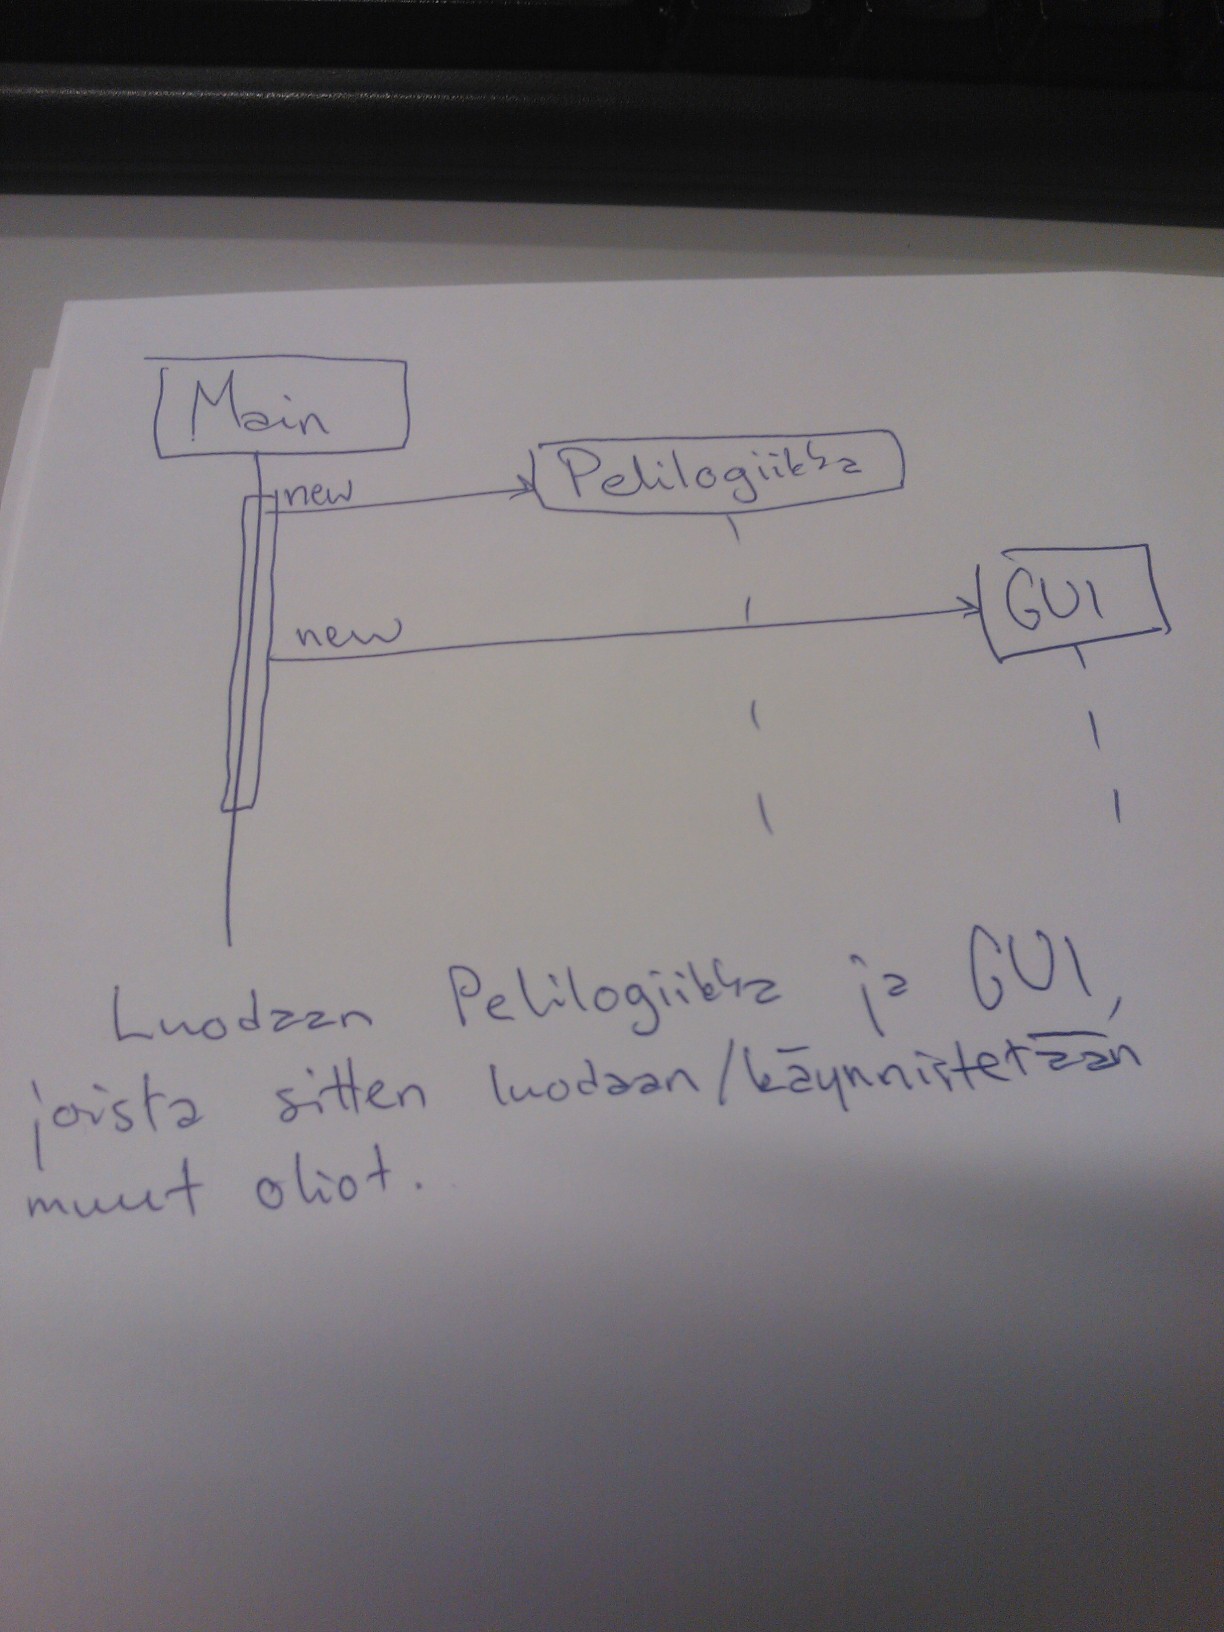 Main
new
Pelilogiikka
new
GUI
Luodaan Pelilogiikka ja GUI,
joista sitten luodaan/käynnistetään
muut oliot.